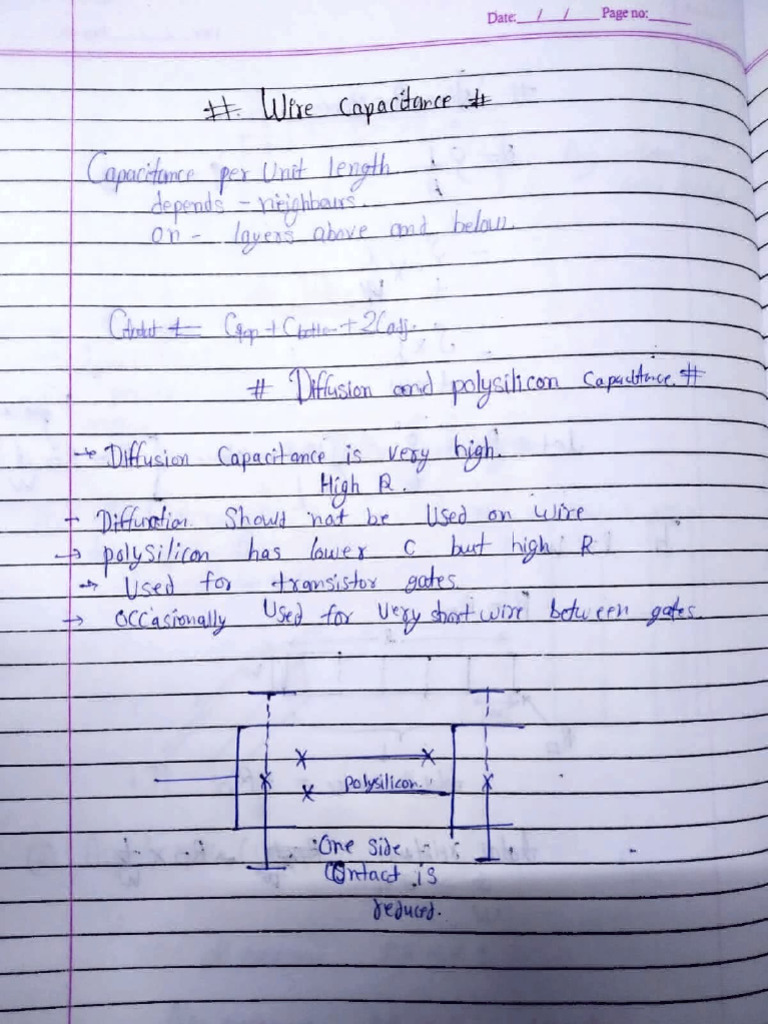 Date: / / Page no:
#. Wire Capacitance. #
Capacitance per Unit length
depends - neighbours.
on - layers above and below.
Ctop + Cbottom + 2Cadj.
# Diffusion and polysilicon Capacitance. #
→ Diffusion Capacitance is very high.
High R.
→ Should not be Used on wire
→ polysilicon has lower C but high R
→ Used for transistor gates
→ Occasionally Used for Very short wire between gates.
polysilicon.
One side
Contact is
reduced.